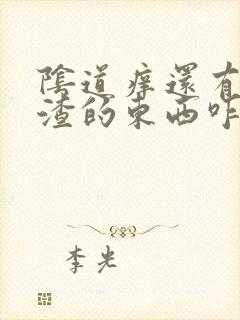 陰道癢還有
渣的東西咋
李光